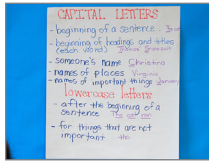 CAPITAL LETTERS
- beginning of a sentence
- beginning of headings and titles
(each word)
- someone's name Christina
- names of places Virginia
- names of important things
lowercase letters
- after the beginning of a
sentence The cat sat
- for things that are not
important the